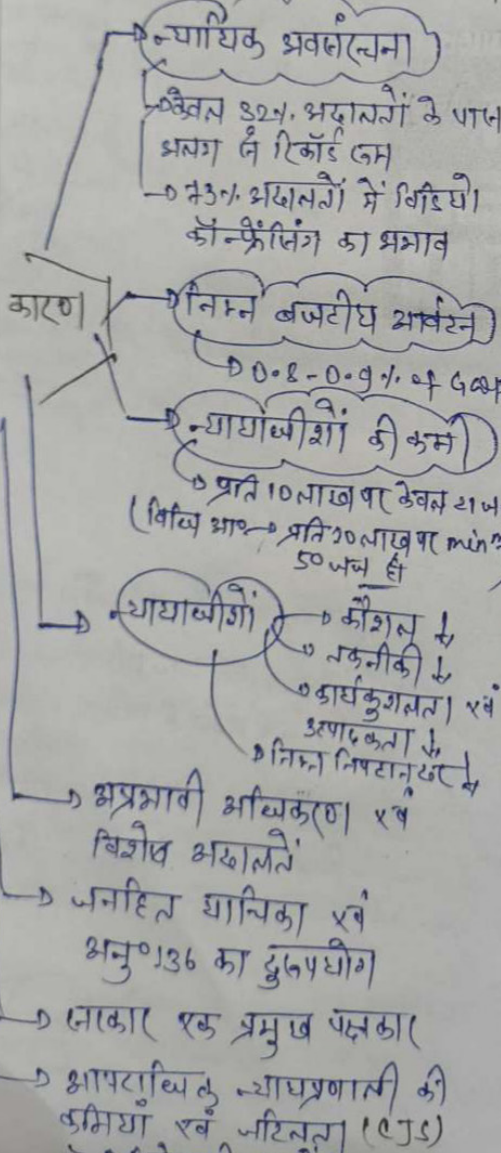 न्यायिक अवसंरचना
केवल 32% अदालतों के पास
अलग से रिकॉर्ड रूम
73% अदालतों में विडियो
कॉन्फ्रेंसिंग का अभाव
कारण
निम्न बजटीय आवंटन
0.8-0.9% of
न्यायाधीशों की कमी
प्रति 10 लाख पर केवल 21 ज
(विधि आ० → प्रति 10 लाख पर min^m
50 जज हो
न्यायाधीशों
कौशल ↓
तकनीकी ↓
कार्यकुशलता एवं
उत्पादकता ↓
निम्न निपटान दर ↓
अप्रभावी अधिकरण एवं
विशेष अदालतें
जनहित याचिका एवं
अनु० 136 का दुरुपयोग
सरकार एक प्रमुख पक्षकार
आपराधिक न्यायप्रणाली की
कमियां एवं जटिलता (CJS)